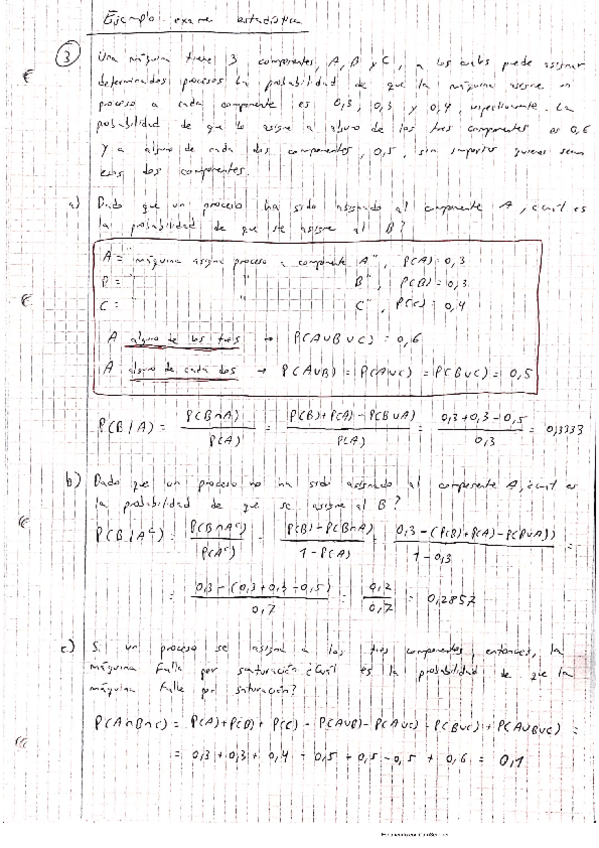 Ejemplo examen estadística
3 Una máquina tiene 3 componentes, A, B y C, a los cuales puede asignar
determinados procesos. La probabilidad de que la máquina asigne un
proceso a cada componente es 0,3, 0,3 y 0,4, respectivamente. La
probabilidad de que lo asigne a alguno de los tres componentes es 0,6
y a alguno de cada dos componentes, 0,5, sin importar quienes sean
esos dos componentes.
a) Dado que un proceso ha sido asignado al componente A, ¿cuál es
la probabilidad de que se asigne al B?
A = "máquina asigna proceso a componente A", P(A) = 0,3
B = " " B", P(B) = 0,3
C = " " C", P(C) = 0,4
A alguno de los tres → P(A∪B∪C) = 0,6
A alguno de cada dos → P(A∪B) = P(A∪C) = P(B∪C) = 0,5
P(B/A) = P(B∩A)/P(A) = P(B)+P(A)-P(B∪A)/P(A) = 0,3+0,3-0,5/0,3 = 0,3333
b) Dado que un proceso no ha sido asignado al componente A, ¿cuál es
la probabilidad de que se asigne al B?
P(B/Aᶜ) = P(B∩Aᶜ)/P(Aᶜ) = P(B)-P(B∩A)/1-P(A) = 0,3-(P(B)+P(A)-P(B∪A))/1-0,3 =
= 0,3-(0,3+0,3-0,5)/0,7 = 0,2/0,7 = 0,2857
c) Si un proceso se asigna a los tres componentes, entonces, la
máquina falla por saturación ¿Cuál es la probabilidad de que la
máquina falle por saturación?
P(A∩B∩C) = P(A)+P(B)+P(C)-P(A∪B)-P(A∪C)-P(B∪C)+P(A∪B∪C) =
= 0,3+0,3+0,4-0,5-0,5-0,5+0,6 = 0,1